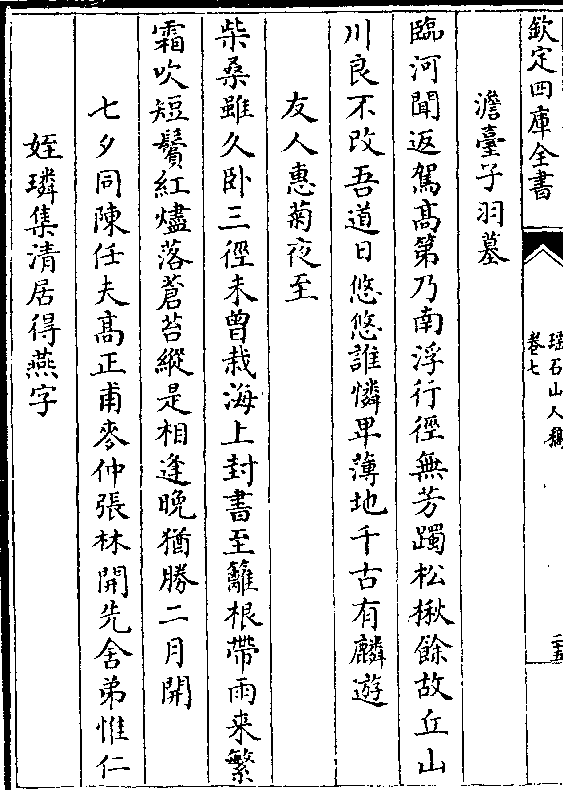 欽定四庫全書
瑶石山人稿
卷七
二十五
澹臺子羽墓
臨河聞返駕髙第乃南浮行徑無芳躅松楸餘故丘山
川良不改吾道日悠悠誰憐卑薄地千古有麟遊
友人惠菊夜至
柴桑雖久卧三徑未曾栽海上封書至籬根帶雨来繁
霜吹短鬢紅燼落蒼苔縱是相逢晚猶勝二月開
七夕同陳任夫髙正甫麥仲張林開先舍弟惟仁
姪璘集清居得燕字